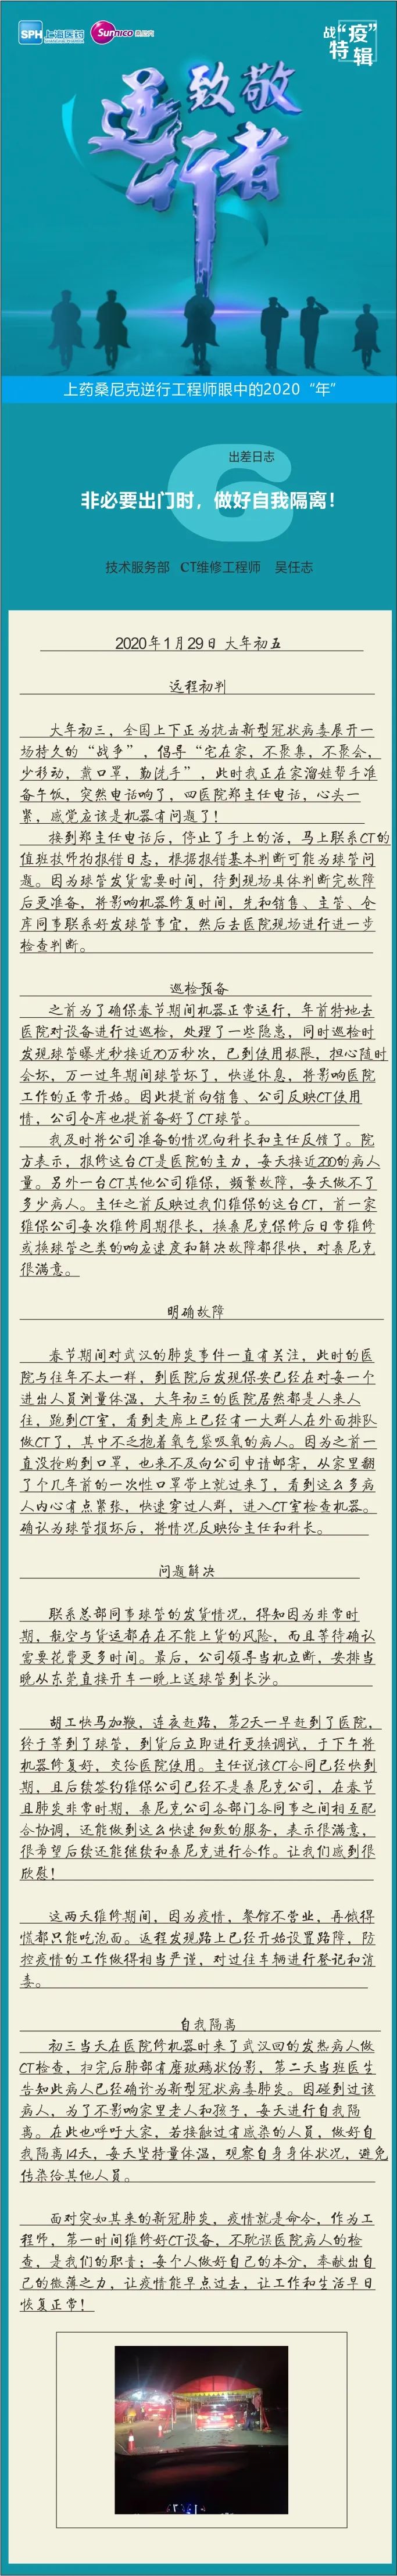 SPH 上海医药
Sunnico 桑尼克
战“疫”
特辑
致敬
逆行者
上药桑尼克逆行工程师眼中的2020“年”
6
出差日志
非必要出门时，做好自我隔离！
技术服务部 CT维修工程师 吴任志
2020年1月29日 大年初五
远程初判
大年初三，全国上下正为抗击新型冠状病毒展开一
场持久的“战争”，倡导“宅在家，不聚集，不聚会，
少移动，戴口罩，勤洗手”，此时我正在家溜娃帮手准
备午饭，突然电话响了，四医院郑主任电话，心头一
紧，感觉应该是机器有问题了！
接到郑主任电话后，停止了手上的活，马上联系CT的
值班技师拍报错日志，根据报错基本判断可能为球管问
题。因为球管发货需要时间，待到现场具体判断完故障
后更准备，将影响机器修复时间，先和销售、主管、仓
库同事联系好发球管事宜，然后去医院现场进行进一步
检查判断。
巡检预备
之前为了确保春节期间机器正常运行，年前特地去
医院对设备进行过巡检，处理了一些隐患，同时巡检时
发现球管曝光秒接近70万秒次，已到使用极限，担心随时
会坏，万一过年期间球管坏了，快递休息，将影响医院
工作的正常开始。因此提前向销售、公司反映CT使用
情，公司仓库也提前备好了CT球管。
我及时将公司准备的情况向科长和主任反馈了。院
方表示，报修这台CT是医院的主力，每天接近200的病人
量。另外一台CT其他公司维保，频繁故障，每天做不了
多少病人。主任之前反映过我们维保的这台CT，前一家
维保公司每次维修周期很长，换桑尼克保修后日常维修
或换球管之类的响应速度和解决故障都很快，对桑尼克
很满意。
明确故障
春节期间对武汉的肺炎事件一直有关注，此时的医
院与往年不太一样，到医院后发现保安已经在对每一个
进出人员测量体温，大年初三的医院居然都是人来人
往，跑到CT室，看到走廊上已经有一大群人在外面排队
做CT了，其中不乏抱着氧气袋吸氧的病人。因为之前一
直没抢购到口罩，也来不及向公司申请邮寄，从家里翻
了个几年前的一次性口罩带上就过来了，看到这么多病
人内心有点紧张，快速穿过人群，进入CT室检查机器。
确认为球管损坏后，将情况反映给主任和科长。
问题解决
联系总部同事球管的发货情况，得知因为非常时
期，航空与货运都存在不能上货的风险，而且等待确认
需要花费更多时间。最后，公司领导当机立断，安排当
晚从东莞直接开车一晚上送球管到长沙。
胡工快马加鞭，连夜赶路，第2天一早赶到了医院，
终于等到了球管，到货后立即进行更换调试，于下午将
机器修复好，交给医院使用。主任说该CT合同已经快到
期，且后续签约维保公司已经不是桑尼克公司，在春节
且肺炎非常时期，桑尼克公司各部门各同事之间相互配
合协调，还能做到这么快速细致的服务，表示很满意，
很希望后续还能继续和桑尼克进行合作。让我们感到很
欣慰！
这两天维修期间，因为疫情，餐馆不营业，再饿得
慌都只能吃泡面。返程发现路上已经开始设置路障，防
控疫情的工作做得相当严谨，对过往车辆进行登记和消
毒。
自我隔离
初三当天在医院修机器时来了武汉回的发热病人做
CT检查，扫完后肺部有磨玻璃状伪影，第二天当班医生
告知此病人已经确诊为新型冠状病毒肺炎。因碰到过该
病人，为了不影响家里老人和孩子，每天进行自我隔
离。在此也呼吁大家，若接触过有感染的人员，做好自
我隔离14天，每天坚持量体温，观察自身身体状况，避免
传染给其他人员。
面对突如其来的新冠肺炎，疫情就是命令，作为工
程师，第一时间维修好CT设备，不耽误医院病人的检
查，是我们的职责；每个人做好自己的本分，奉献出自
己的微薄之力，让疫情能早点过去，让工作和生活早日
恢复正常！